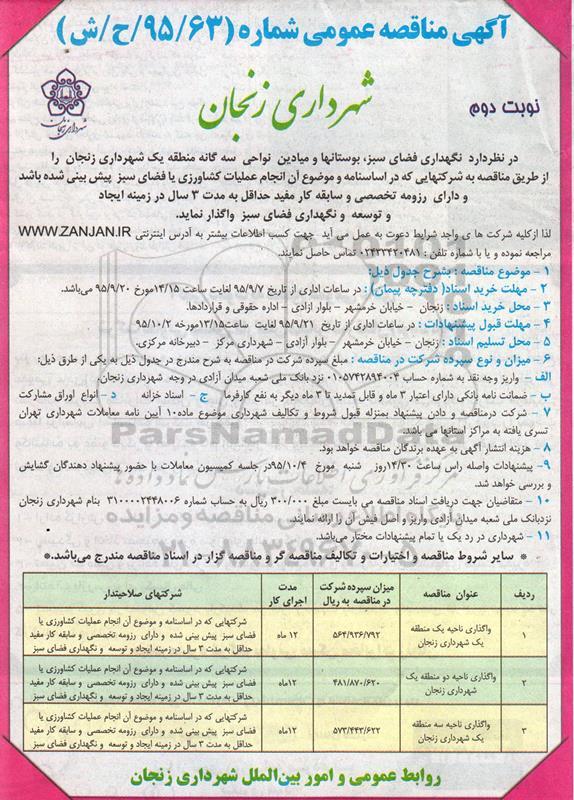 آگهی مناقصه عمومی شماره (۹۵/۶۳/ح/ش)
شهرداری زنجان
نوبت دوم
شهرداری زنجان
در نظردارد نگهداری فضای سبز، بوستانها و میادین نواحی سه گانه منطقه یک شهرداری زنجان را
از طریق مناقصه به شرکتهایی که در اساسنامه و موضوع آن انجام عملیات کشاورزی یا فضای سبز پیش بینی شده باشد
و دارای رزومه تخصصی و سابقه کار مفید حداقل به مدت ۳ سال در زمینه ایجاد
و توسعه و نگهداری فضای سبز واگذار نماید.
لذا ازکلیه شرکت ها ی واجد شرایط دعوت به عمل می آید جهت کسب اطلاعات بیشتر به آدرس اینترنتی WWW.ZANJAN.IR
مراجعه نموده و یا با شماره تلفن : ۰۲۴۳۳۴۲۰۴۸۱ تماس حاصل نمایند.
۱ - موضوع مناقصه : بشرح جدول ذیل:
۲ - مهلت خرید اسناد( دفترچه پیمان) : در ساعات اداری از تاریخ ۹۵/۹/۷ لغایت ساعت ۱۴/۱۵مورخ ۹۵/۹/۲۰ می‌باشد.
۳ - محل خرید اسناد : زنجان - خیابان خرمشهر - بلوار ازادی - اداره حقوقی و قراردادها.
۴ - مهلت قبول پیشنهادات : در ساعات اداری از تاریخ ۹۵/۹/۲۱ لغایت ساعت۱۳/۱۵مورخه ۹۵/۱۰/۲
۵ - محل تسلیم اسناد : زنجان - خیابان خرمشهر - بلوار آزادی - شهرداری مرکز - دبیرخانه مرکزی.
۶ - میزان و نوع سپرده شرکت در مناقصه : مبلغ سپرده شرکت در مناقصه به شرح مندرج در جدول ذیل به یکی از طرق ذیل:
الف - واریز وجه نقد به شماره حساب ۰۱۰۵۷۴۲۸۹۴۰۰۴ نزد بانک ملی شعبه میدان آزادی در وجه شهرداری زنجان.
ب - ضمانت نامه بانکی دارای اعتبار ۳ ماه و قابل تمدید تا ۳ ماه دیگر به نفع کارفرما ج - اسناد خزانه د - انواع اوراق مشارکت
۷ - شرکت درمناقصه و دادن پیشنهاد بمنزله قبول شروط و تکالیف شهرداری موضوع ماده۱۰ آیین نامه معاملات شهرداری تهران
تسری یافته به مراکز استانها می باشد.
۸ - هزینه انتشار آگهی به عهده برندگان مناقصه خواهد بود.
۹ - پیشنهادات واصله راس ساعت ۱۴/۳۰روز شنبه مورخ ۹۵/۱۰/۴در جلسه کمیسیون معاملات با حضور پیشنهاد دهندگان گشایش
و بررسی خواهد شد.
۱۰ - متقاضیان جهت دریافت اسناد مناقصه می بایست مبلغ ۳۰۰/۰۰۰ ریال به حساب شماره ۳۱۰۰۰۰۲۴۴۸۰۰۶ بنام شهرداری زنجان
نزدبانک ملی شعبه میدان آزادی واریز و اصل فیش آن را ارائه نمایند.
۱۱ - شهرداری در رد یک یا تمام پیشنهادات مختار می‌باشد.
* سایر شروط مناقصه و اختیارات و تکالیف مناقصه گر و مناقصه گزار در اسناد مناقصه مندرج می‌باشد.*
ردیف عنوان مناقصه میزان سپرده شرکت در مناقصه به ریال مدت اجرای کار شرکتهای صلاحیتدار
۱ واگذاری ناحیه یک منطقه یک شهرداری زنجان ۵۶۴/۹۳۶/۷۹۲ ۱۲ ماه شرکتهایی که در اساسنامه و موضوع آن انجام عملیات کشاورزی یا
فضای سبز پیش بینی شده و دارای رزومه تخصصی و سابقه کار مفید
حداقل به مدت ۳ سال در زمینه ایجاد و توسعه و نگهداری فضای سبز
۲ واگذاری ناحیه دو منطقه یک شهرداری زنجان ۴۸۱/۸۷۰/۶۲۰ ۱۲ماه شرکتهایی که در اساسنامه و موضوع آن انجام عملیات کشاورزی یا
فضای سبز پیش بینی شده و دارای رزومه تخصصی و سابقه کار مفید
حداقل به مدت ۳ سال در زمینه ایجاد و توسعه و نگهداری فضای سبز
۳ واگذاری ناحیه سه منطقه یک شهرداری زنجان ۵۷۳/۴۴۳/۶۲۲ ۱۲ماه شرکتهایی که در اساسنامه و موضوع آن انجام عملیات کشاورزی یا
فضای سبز پیش بینی شده و دارای رزومه تخصصی و سابقه کار مفید
حداقل به مدت ۳ سال در زمینه ایجاد و توسعه و نگهداری فضای سبز
روابط عمومی و امور بین‌الملل شهرداری زنجان
ParsNamadData